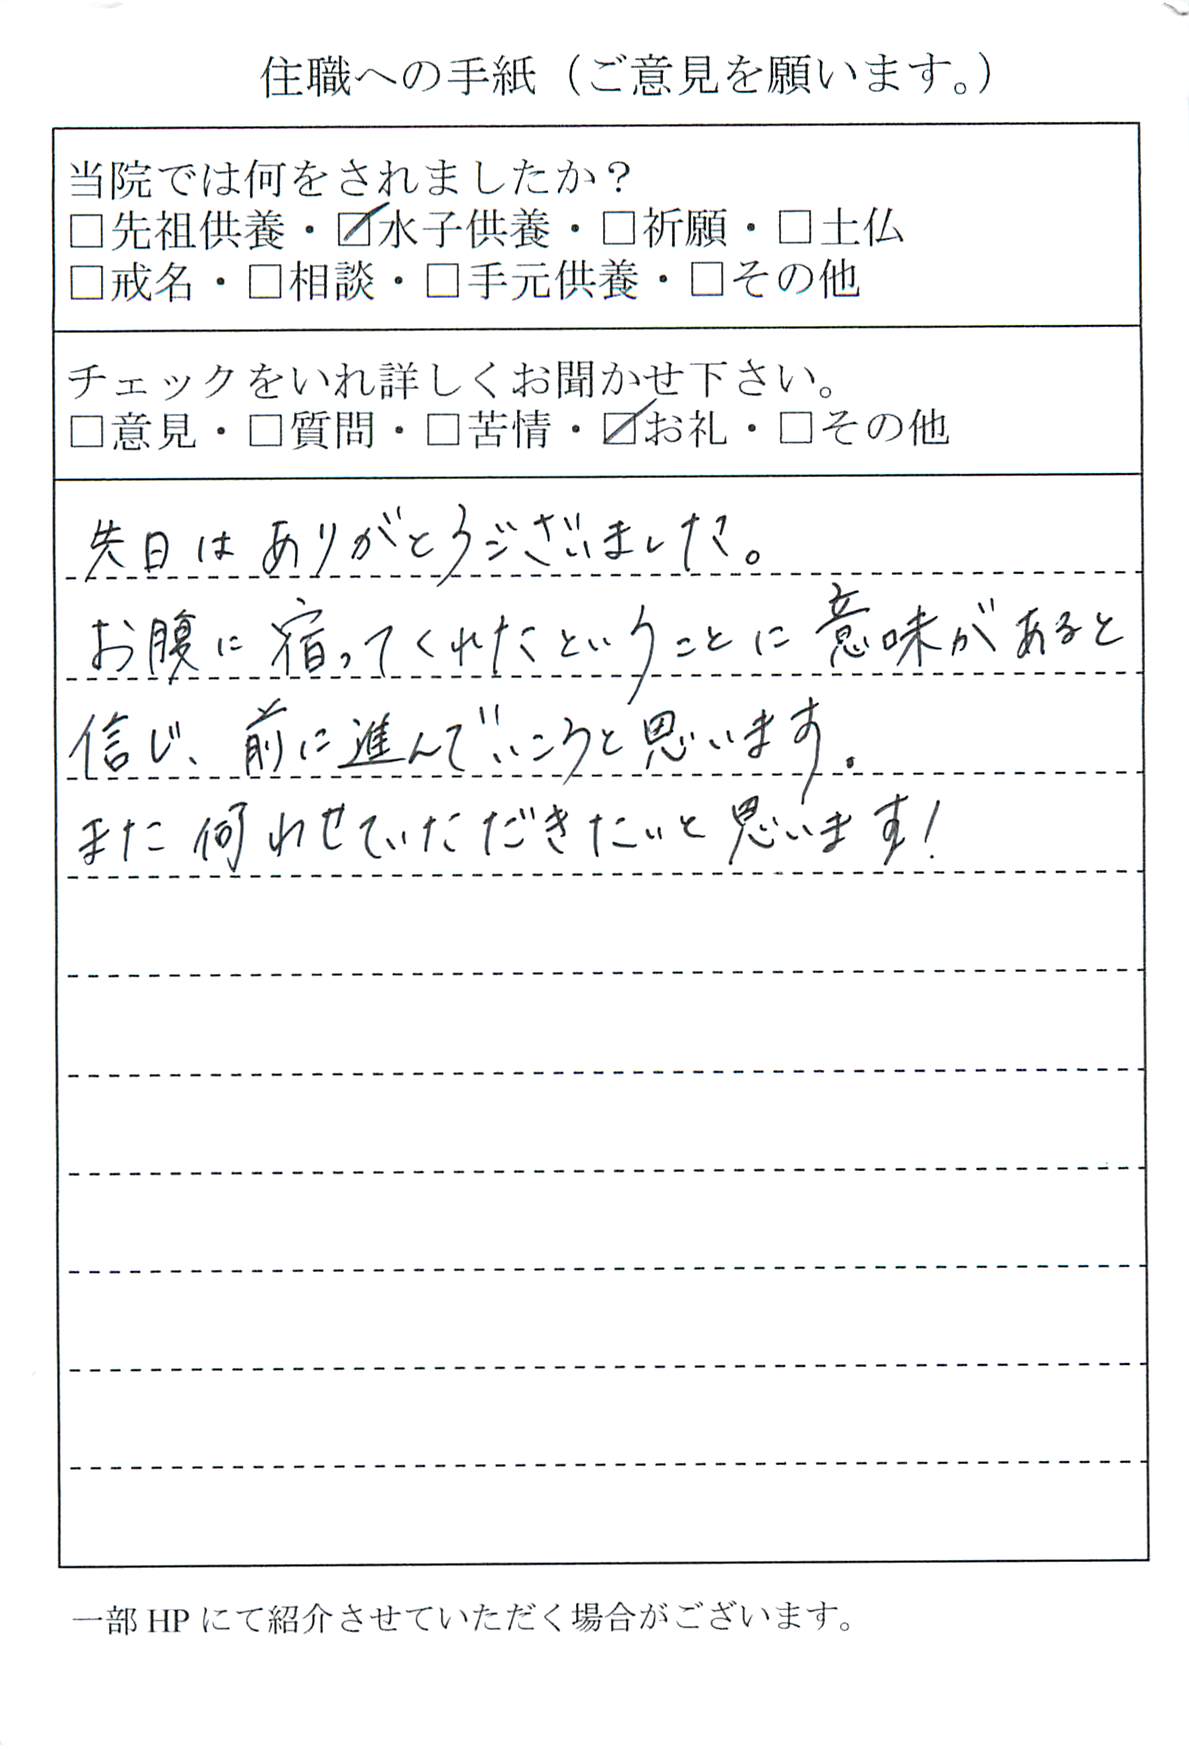 住職への手紙（ご意見を願います。）
当院では何をされましたか？
□先祖供養・☑水子供養・□祈願・□土仏
□戒名・□相談・□手元供養・□その他
チェックをいれ詳しくお聞かせ下さい。
□意見・□質問・□苦情・☑お礼・□その他
先日はありがとうございました。
お腹に宿ってくれたということに意味があると
信じ、前に進んでいこうと思います。
また伺わせていただきたいと思います！
一部HPにて紹介させていただく場合がございます。